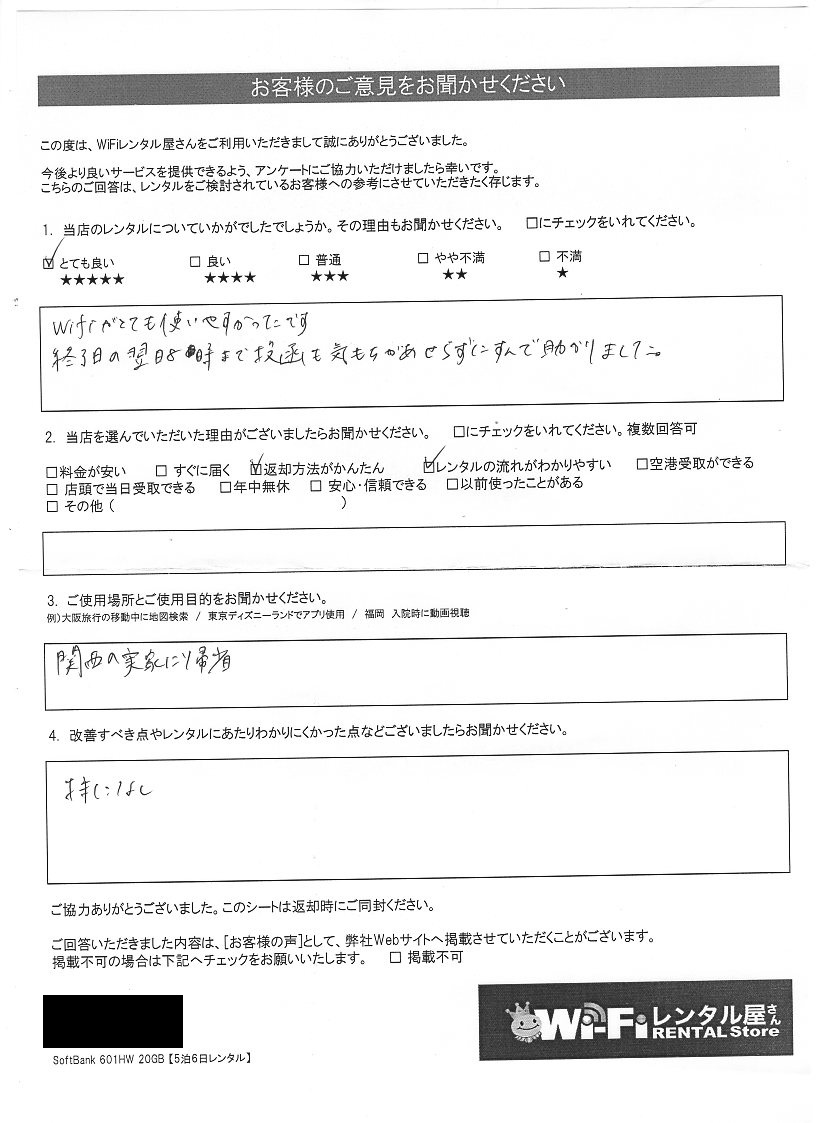 お客様のご意見をお聞かせください
この度は、WiFiレンタル屋さんをご利用いただきまして誠にありがとうございました。
今後より良いサービスを提供できるよう、アンケートにご協力いただけましたら幸いです。
こちらのご回答は、レンタルをご検討されているお客様への参考にさせていただきたく存じます。
1. 当店のレンタルについていかがでしたでしょうか。その理由もお聞かせください。 □にチェックをいれてください。
☑ とても良い □ 良い □ 普通 □ やや不満 □ 不満
★★★★★ ★★★★ ★★★ ★★ ★
Wifiがとても使いやすかったです
終了日の翌日8時まで投函も気もちがあせらずにすんで助かりました。
2. 当店を選んでいただいた理由がございましたらお聞かせください。 □にチェックをいれてください。複数回答可
□料金が安い □ すぐに届く ☑返却方法がかんたん ☑レンタルの流れがわかりやすい □空港受取ができる
□ 店頭で当日受取できる □年中無休 □ 安心・信頼できる □以前使ったことがある
□ その他 ( )
3. ご使用場所とご使用目的をお聞かせください。
例)大阪旅行の移動中に地図検索 / 東京ディズニーランドでアプリ使用 / 福岡 入院時に動画視聴
関西の実家に帰省
4. 改善すべき点やレンタルにあたりわかりにくかった点などございましたらお聞かせください。
特になし
ご協力ありがとうございました。このシートは返却時にご同封ください。
ご回答いただきました内容は、[お客様の声]として、弊社Webサイトへ掲載させていただくことがございます。
掲載不可の場合は下記へチェックをお願いいたします。 □ 掲載不可
Wi-Fiレンタル屋さん
RENTAL Store
SoftBank 601HW 20GB【5泊6日レンタル】